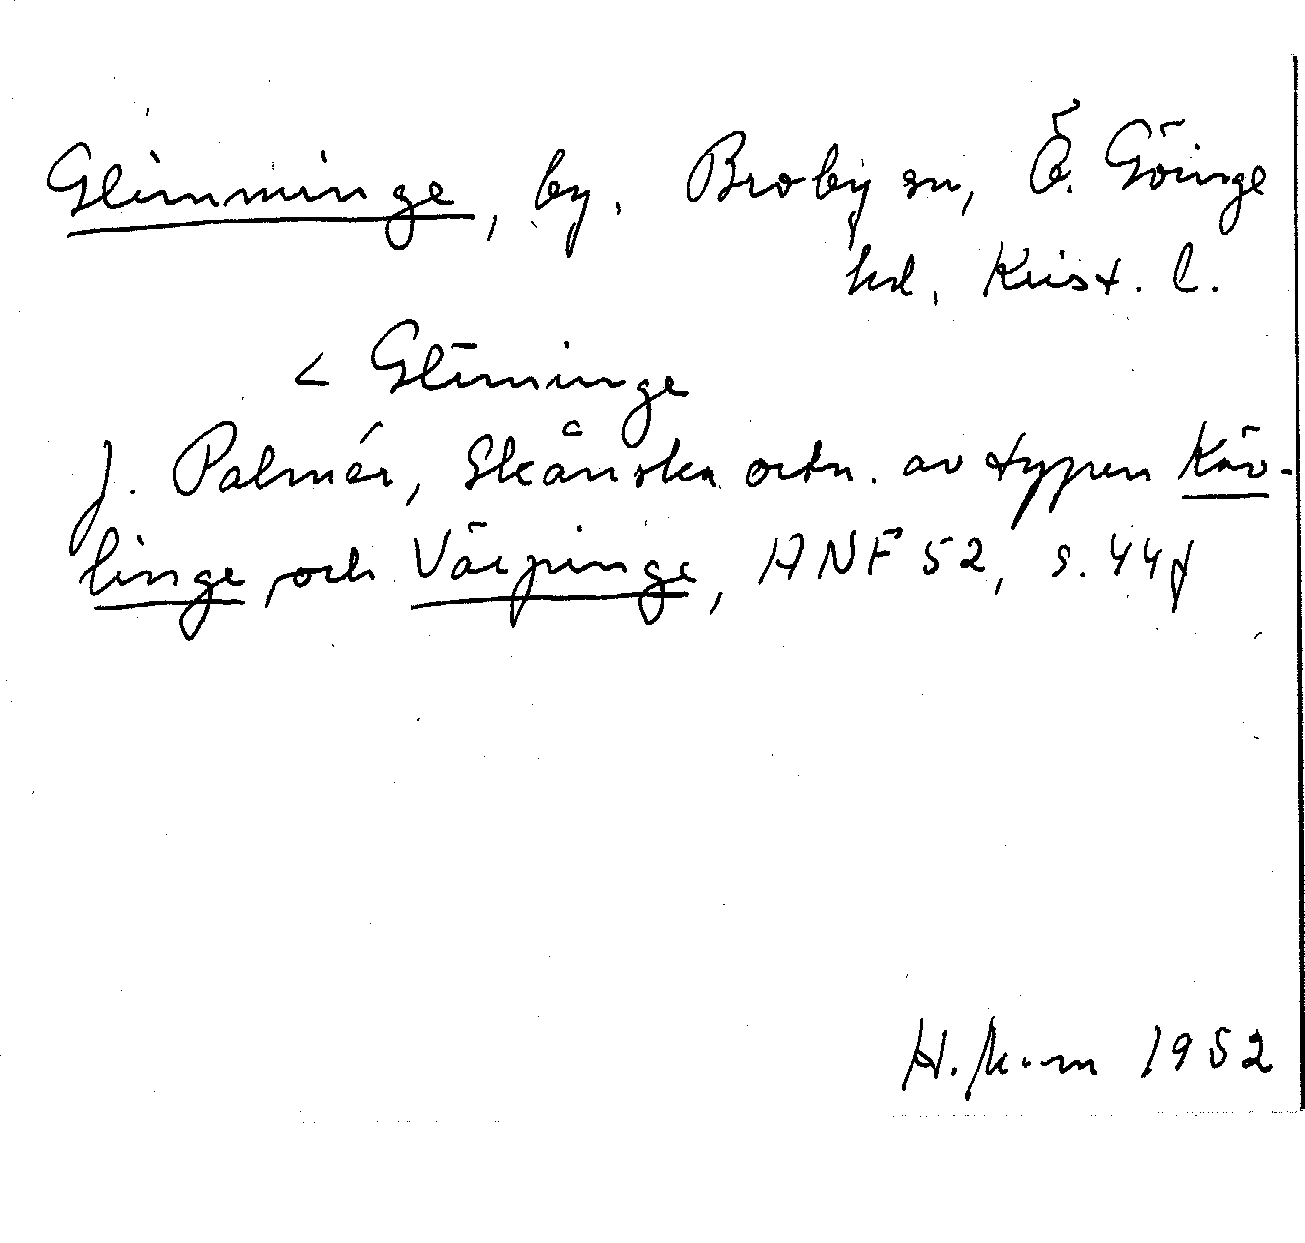 Glimminge, by. Broby sn, Ö. Göinge
hd, Krist. l.
< Glīminge
J. Palmér, Skånska ortn. av typen Käv-
linge och Värpinge, ANF 52, s. 44f
H. 1952